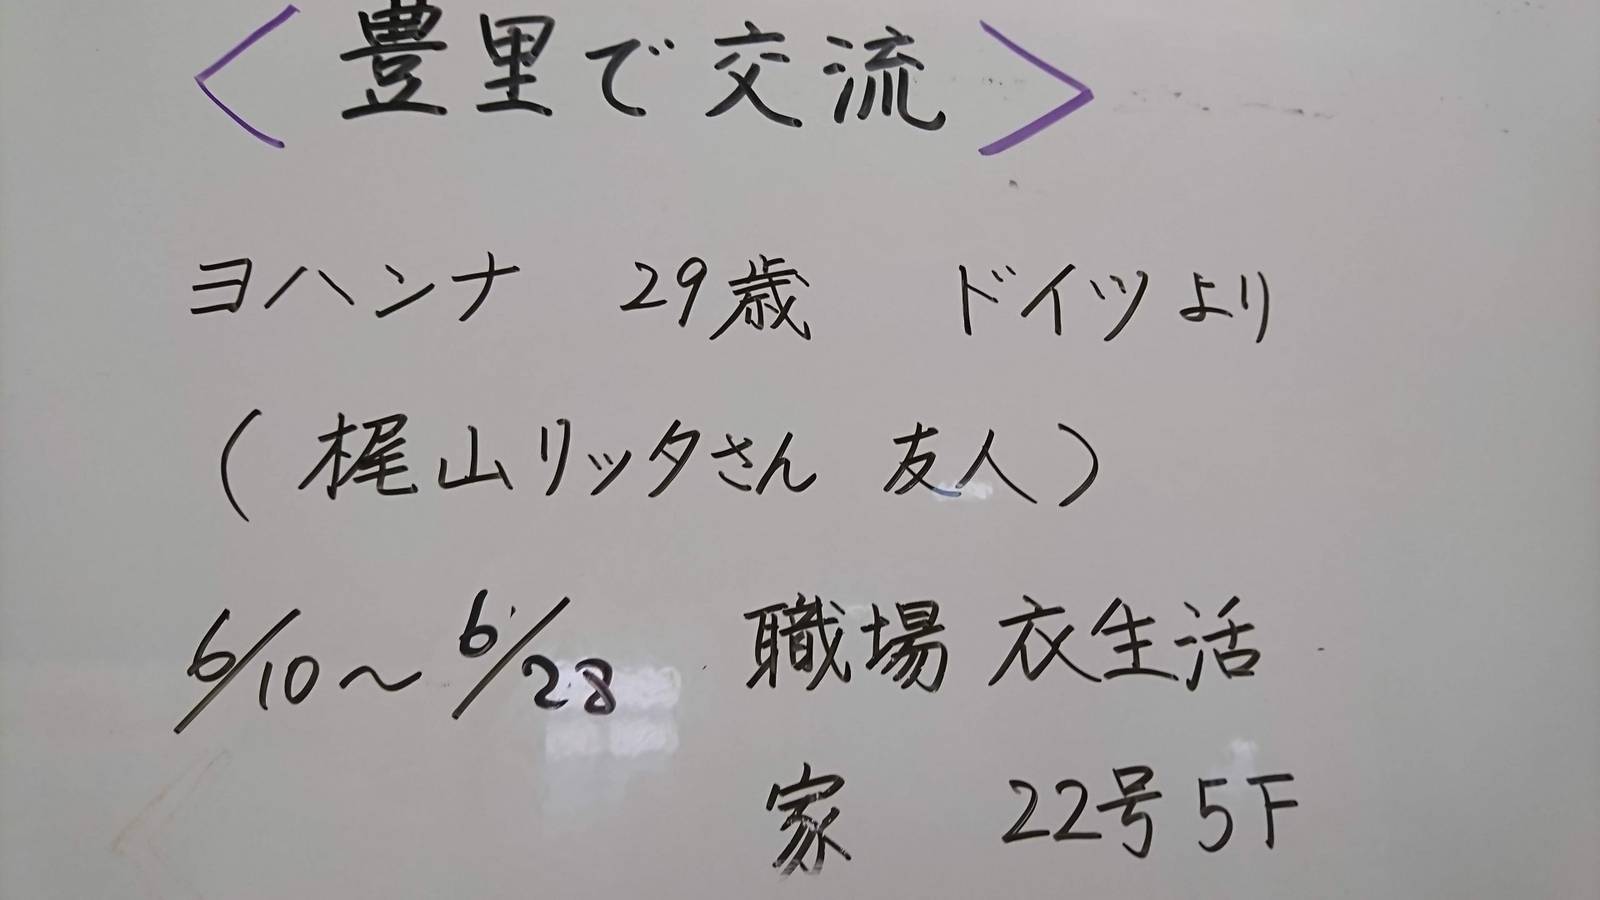 〈豊里で交流〉
ヨハンナ 29歳 ドイツより
(梶山リッタさん 友人)
6/10～6/28 職場 衣生活
家 22号5F